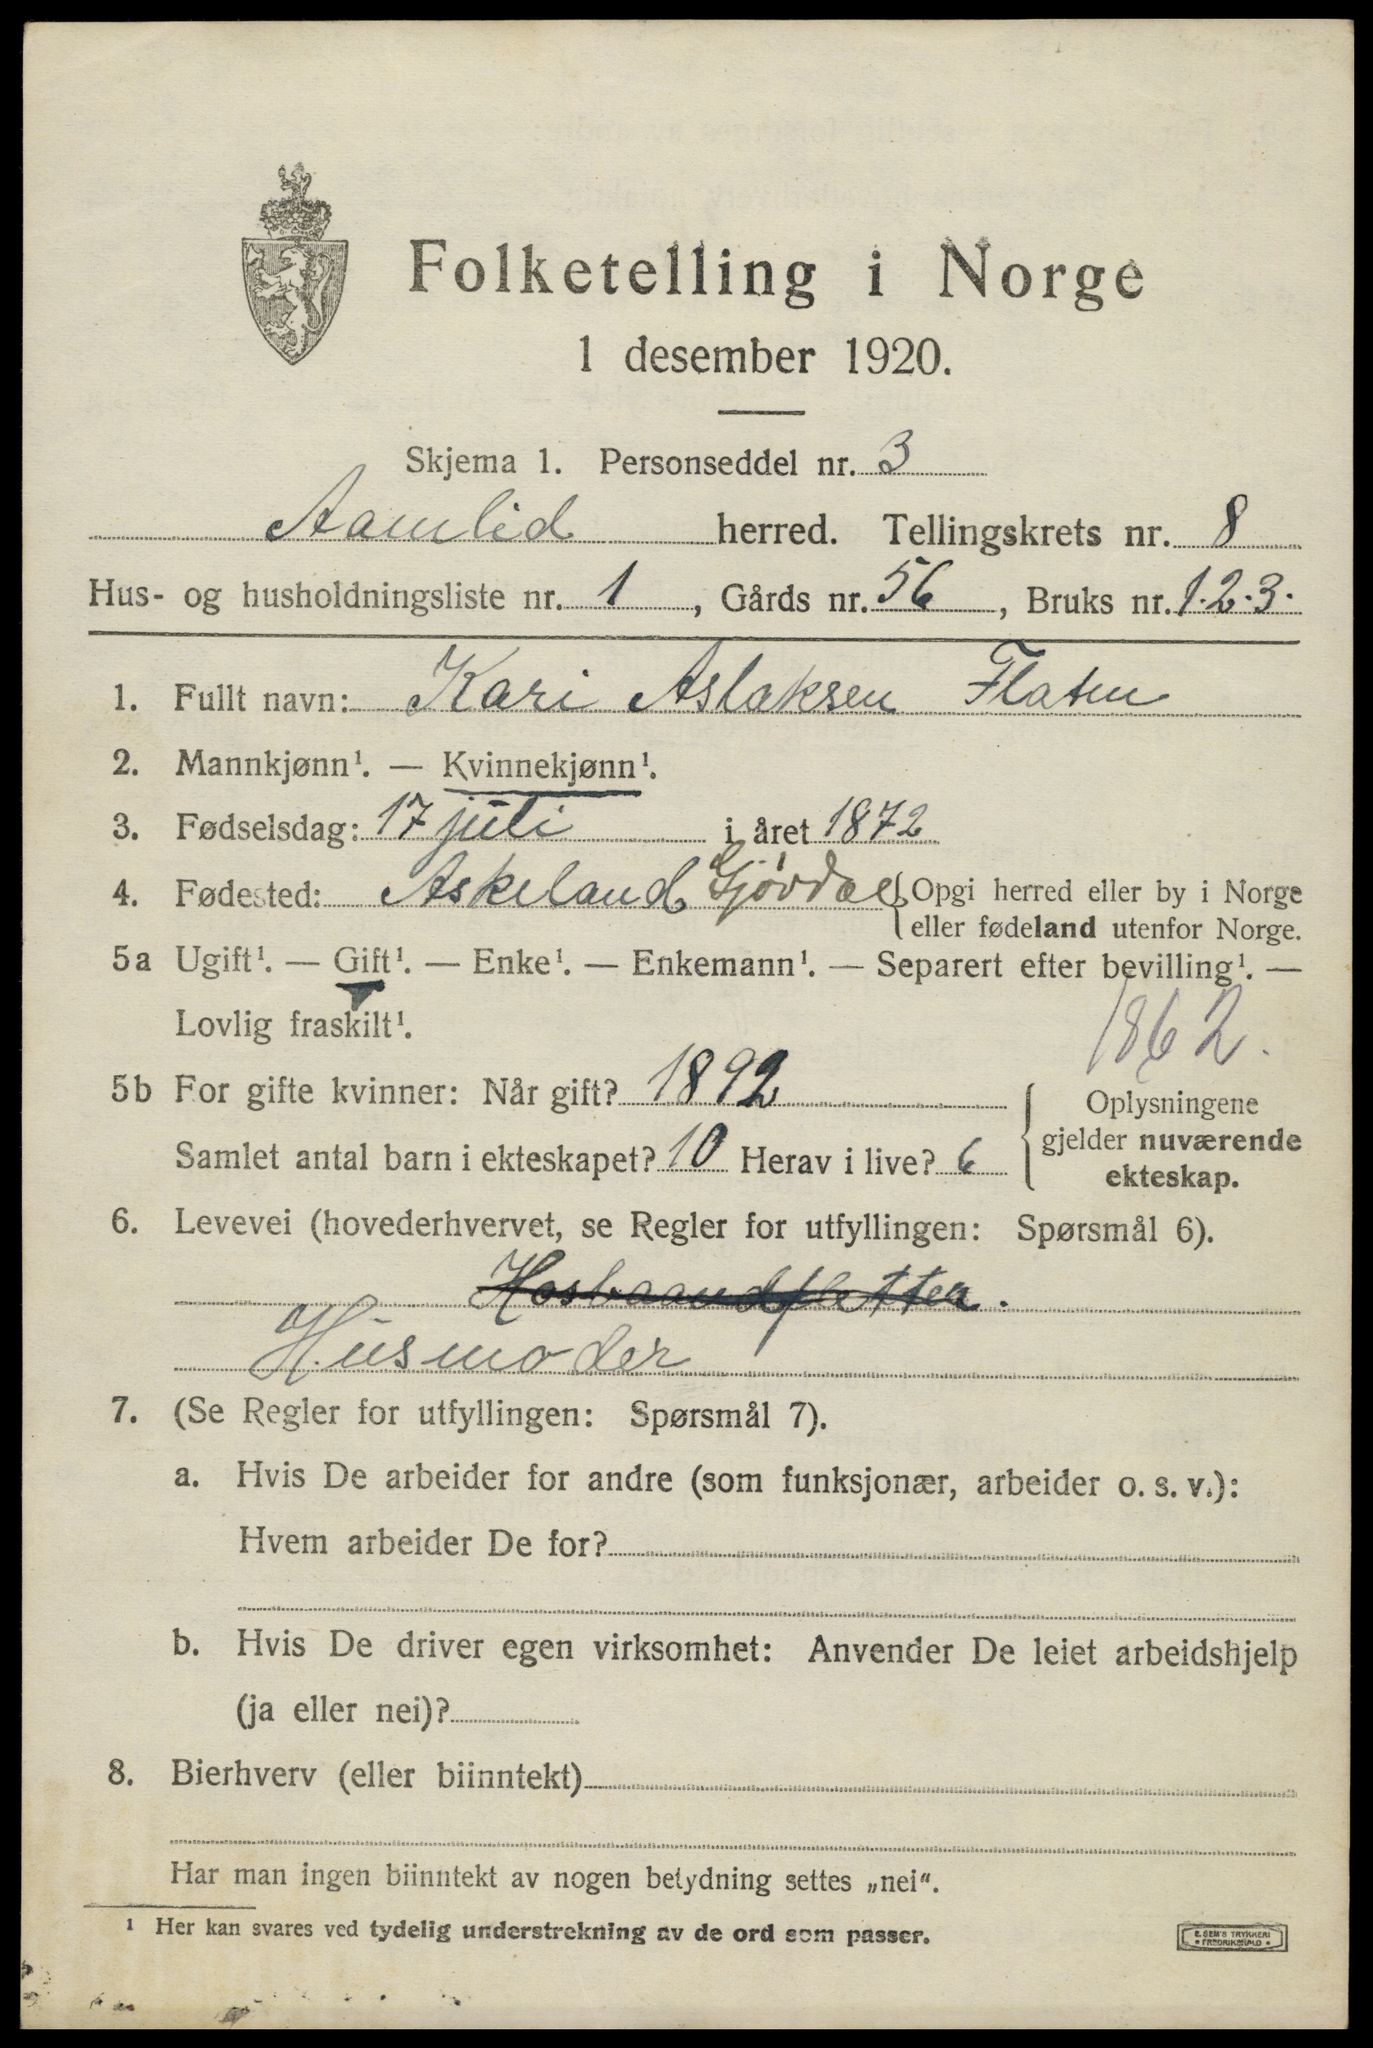 Folketelling i Norge
1 desember 1920.
Skjema 1. Personseddel nr. 3
Aamlid herred. Tellingskrets nr. 8
Hus- og husholdningsliste nr. 1, Gårds nr. 56, Bruks nr. 1.2.3.
1. Fullt navn: Kari Aslaksen Flaten
2. Mannkjønn¹. — Kvinnekjønn¹.
3. Fødselsdag: 17 juli i året 1872
4. Fødested: Askeland Gjøvdal {Opgi herred eller by i Norge
eller fødeland utenfor Norge.
5a Ugift¹. — Gift¹. — Enke¹. — Enkemann¹. — Separert efter bevilling¹. —
Lovlig fraskilt¹.
1862.
5b For gifte kvinner: Når gift? 1892
Samlet antal barn i ekteskapet? 10 Herav i live? 6
Oplysningene
gjelder nuværende
ekteskap.
6. Levevei (hovederhvervet, se Regler for utfyllingen: Spørsmål 6).
Hosbaandfletter.
Husmoder
7. (Se Regler for utfyllingen: Spørsmål 7).
a. Hvis De arbeider for andre (som funksjonær, arbeider o. s. v.):
Hvem arbeider De for?
b. Hvis De driver egen virksomhet: Anvender De leiet arbeidshjelp
(ja eller nei)?
8. Bierhverv (eller biinntekt)
Har man ingen biinntekt av nogen betydning settes „nei".
¹ Her kan svares ved tydelig understrekning av de ord som passer.
E. SEM'S TRYKKERI
• FREDRIKSHALD •